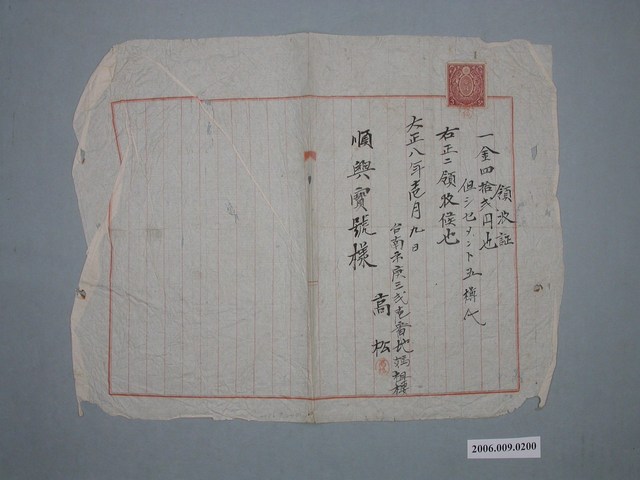 領收証
一金四拾弐円也
但シセメント五樽代
右正ニ領收候也
大正八年壱月九日
台南
三弐壱番地
高松
順興寶號樣
2006.009.0200